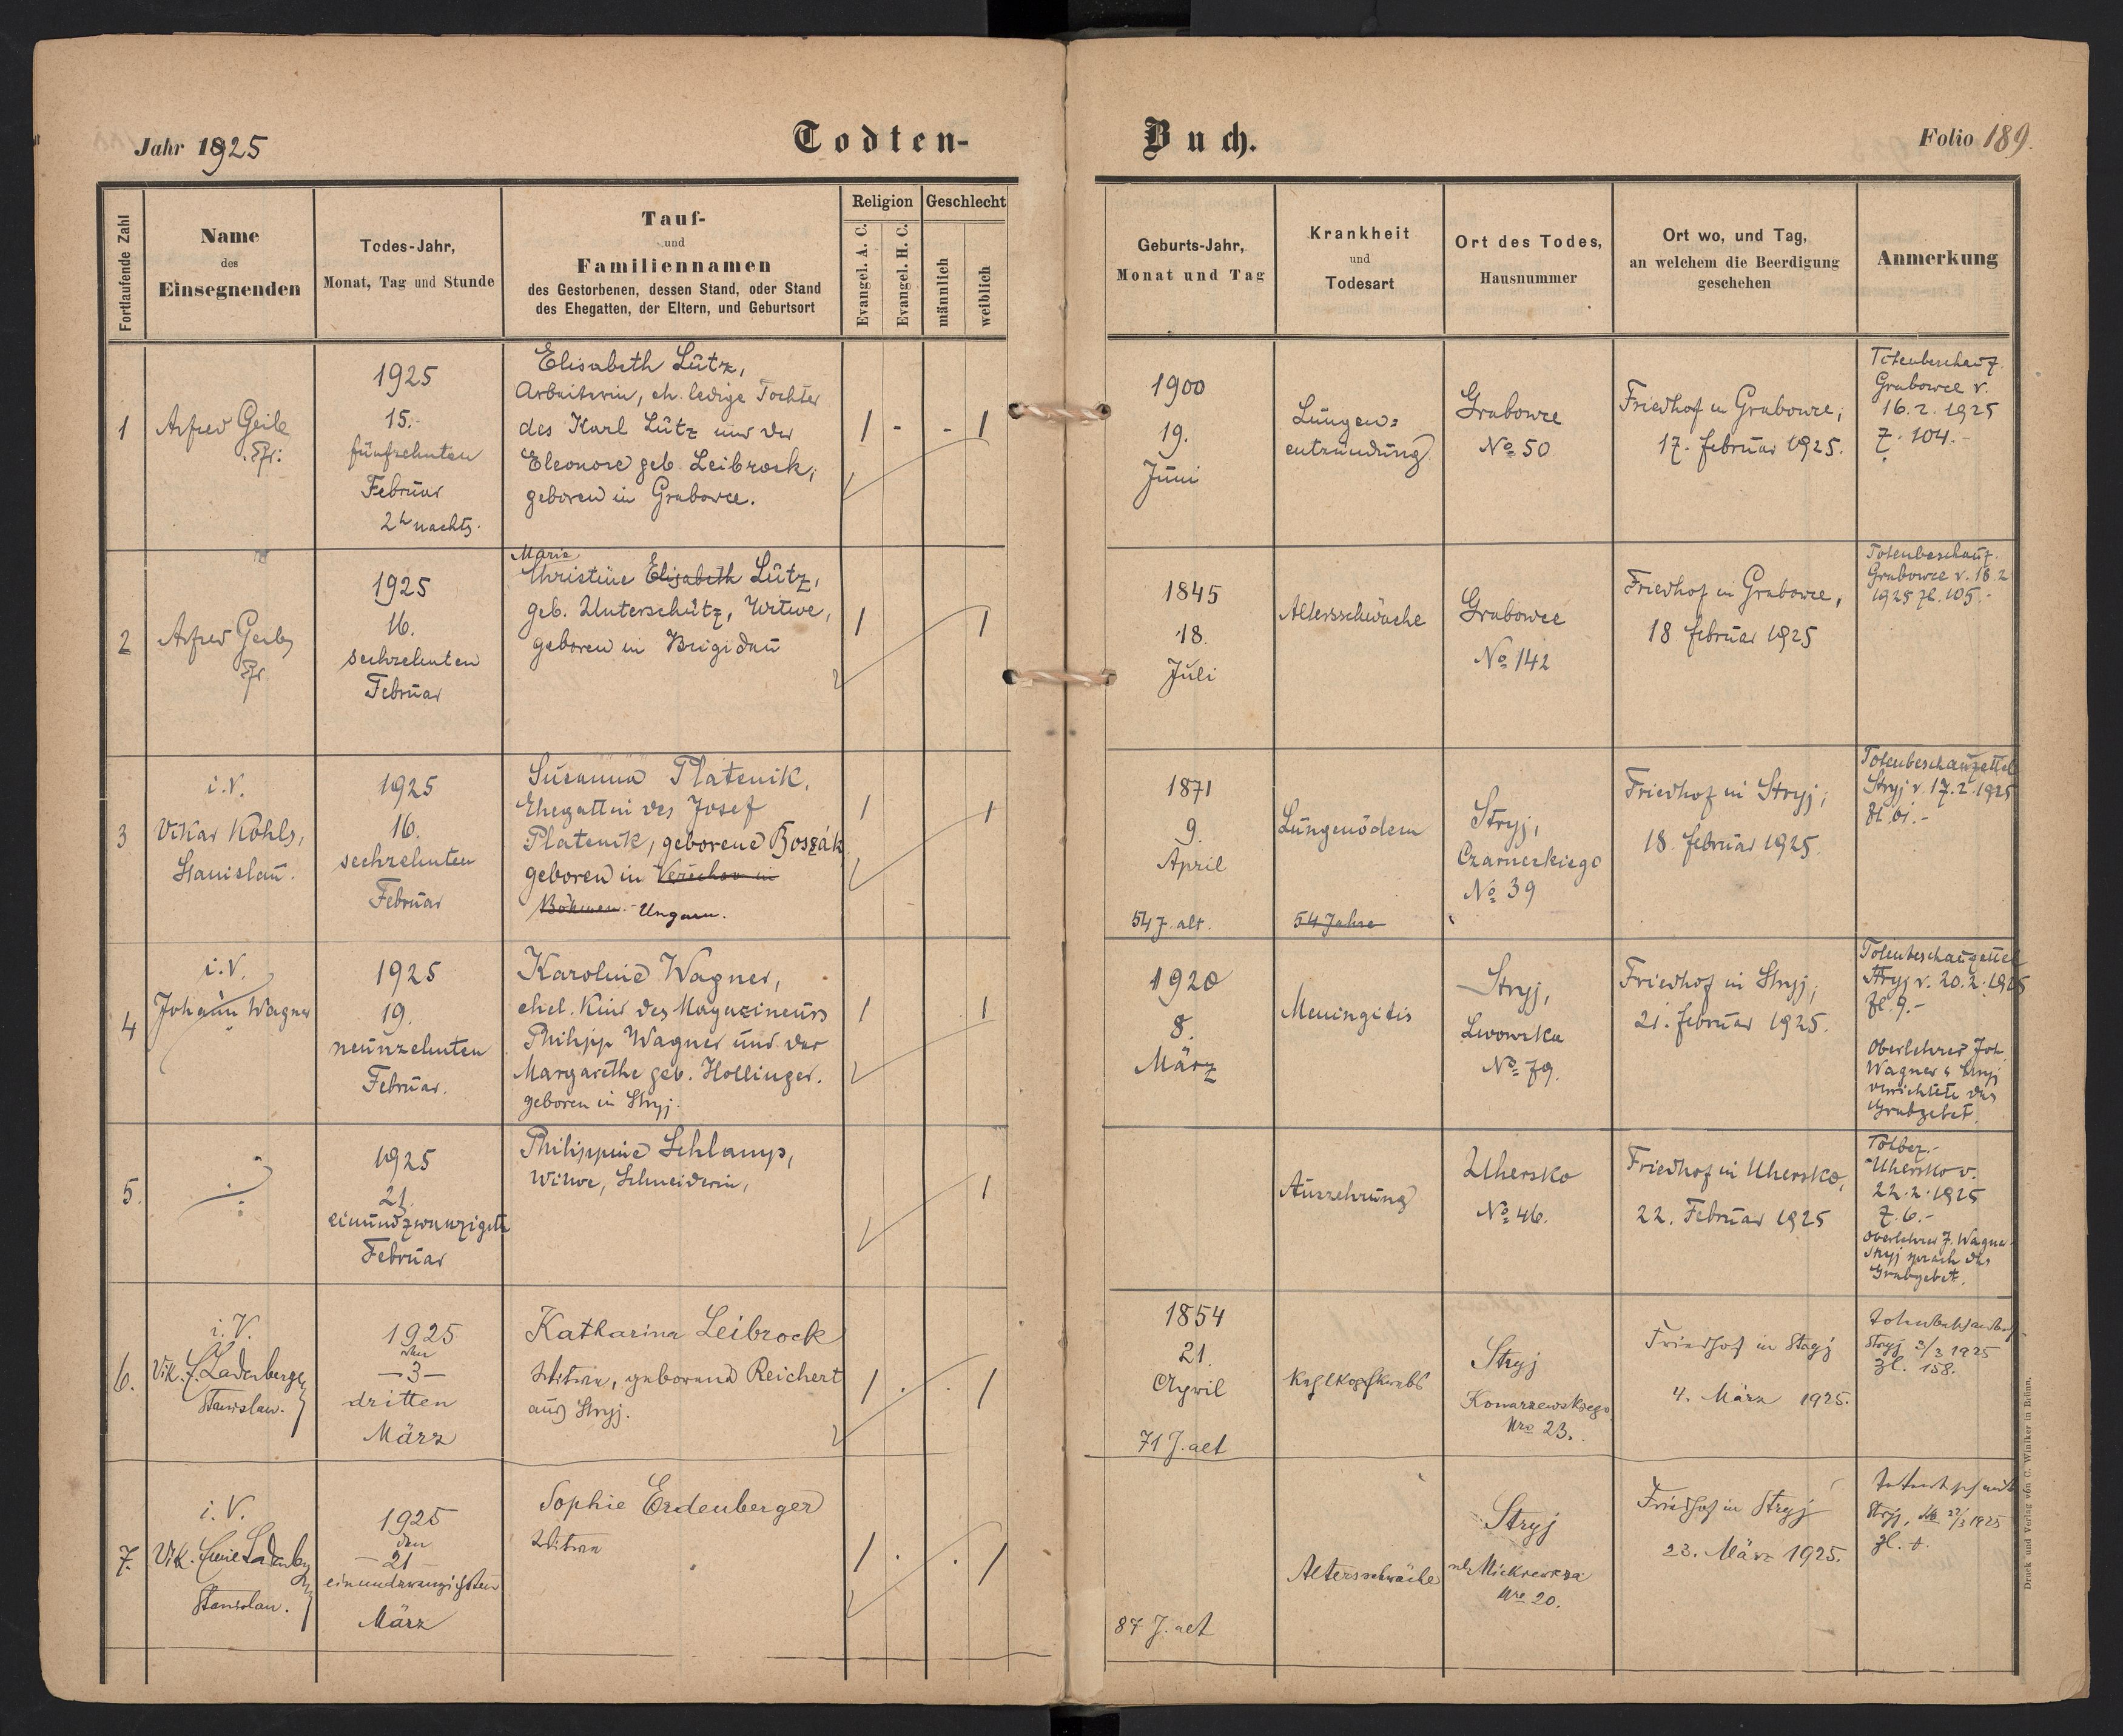 Jahr 1925
Todten-
Buch.
Folio 189.
Fortlaufende Zahl
Name
des
Einsegnenden
Todes-Jahr,
Monat, Tag und Stunde
Tauf-
und
Familiennamen
des Gestorbenen, dessen Stand, oder Stand
des Ehegatten, der Eltern, und Geburtsort
Religion
Evangel. A. C.
Evangel. H. C.
Geschlecht
männlich
weiblich
Geburts-Jahr,
Monat und Tag
Krankheit
und
Todesart
Ort des Todes,
Hausnummer
Ort wo, und Tag,
an welchem die Beerdigung
geschehen
Anmerkung
1
1925
15.-
fünfzehnten
Februar
2h nachts.
Elisabeth Lütz,
Arbeiterin, eh. ledige Tochter
des Karl Lütz und der
Eleonore geb. Leibrock,
geboren in Grabowce.
1 - - 1
1900
19.
Juni
Lungen=
entzündung
Grabowce
No 50
Friedhof in Grabowce,
17. Februar 1925.
Grabowce v.
16.2.1925
Z. 104.-
2
1925
16.
sechzehnten
Februar
Marie
Christine Elisabeth Lütz,
geb. Unterschütz, Witwe,
geboren in Brigidau
1 1
1845
18.
Juli
Altersschwäche
Grabowce
No 142
Friedhof in Grabowce,
18. Februar 1925
Grabowce v. 18.2
1925 Zl. 105.-
3
i.V.
Vikar Kohls,
Stanislau.
1925
16.
sechzehnten
Februar
Susanna Platenik,
Ehegattin des Josef
Platenik, geborene Boszák
geboren in
Böhmen.- Ungarn.
1 1
1871
9.
April
54 J. alt.
Lungenödem
54 Jahre
Stryj,
Czarneckiego
No 39
Friedhof in Stryj;
18. Februar 1925.
Totenbeschauzettel
Stryj v. 17.2.1925
4
i.V.
Johann Wagner
1925
19.
neunzehnten
Februar.
Karoline Wagner,
ehel. Kind des Magazineurs
Philipp Wagner und der
Margarethe geb. Hollinger.
geboren in Stryj.
1 1
1920
8.
März
Meningitis
Stryj,
Lwowska
No 79.
Friedhof in Stryj;
21. Februar 1925.
Totenbeschauzettel
Stryj v. 20.2.1925
Zl. 9.-
Oberlehrer Joh.
Wagner Stryj
verrichtete das
Grabgebet.
5.
1925
21.
einundzwanzigsten
Februar
Philippine Schlamp,
Witwe, Schneiderin,
1
Auszehrung
Uhersko
No 46.
Friedhof in Uhersko,
22. Februar 1925
Uhersko v.
22.2.1925
Z. 6.-
Oberlehrer J. Wagner
Stryj sprach das
Grabgebet.
6.
i.V.
Vik. Ladenberger
Stanislau.
1925
den
-3-
dritten
März
Katharina Leibrock
Witwe, geborene Reichert
aus Stryj.
1 . . 1
1854
21.
April
71 J. alt
Kehlkopfkrebs
Stryj
Konarzewskiego
Nro 23.
Friedhof in Stryj
4. März 1925.
Stryj 3/3 1925
Zl. 158.
7.
i.V.
Vik.
Stanislau.
1925
den
-21-
einundzwanzigsten
März
Sophie Erdenberger
Witwe
1 . . 1
87 J. alt
Altersschwäche
Stryj
Nro 20.
Friedhof in Stryj
23. März 1925.
Druck und Verlag von C. Winiker in Brünn.